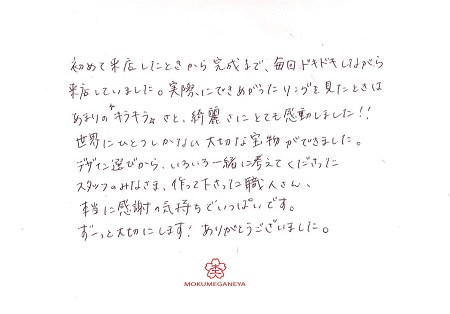 初めて来店したときから完成まで、毎回ドキドキしながら
来店していました。実際にできあがったリングを見たときは
あまりの〝キラキラ〟さと、綺麗さにとても感動しました!!
世界にひとつしかない大切な宝物ができました。
デザイン選びから、いろいろ一緒に考えてくださった
スタッフのみなさま、作って下さった職人さん、
本当に感謝の気持ちでいっぱいです。
ずーっと大切にします! ありがとうございました。
MOKUMEGANEYA